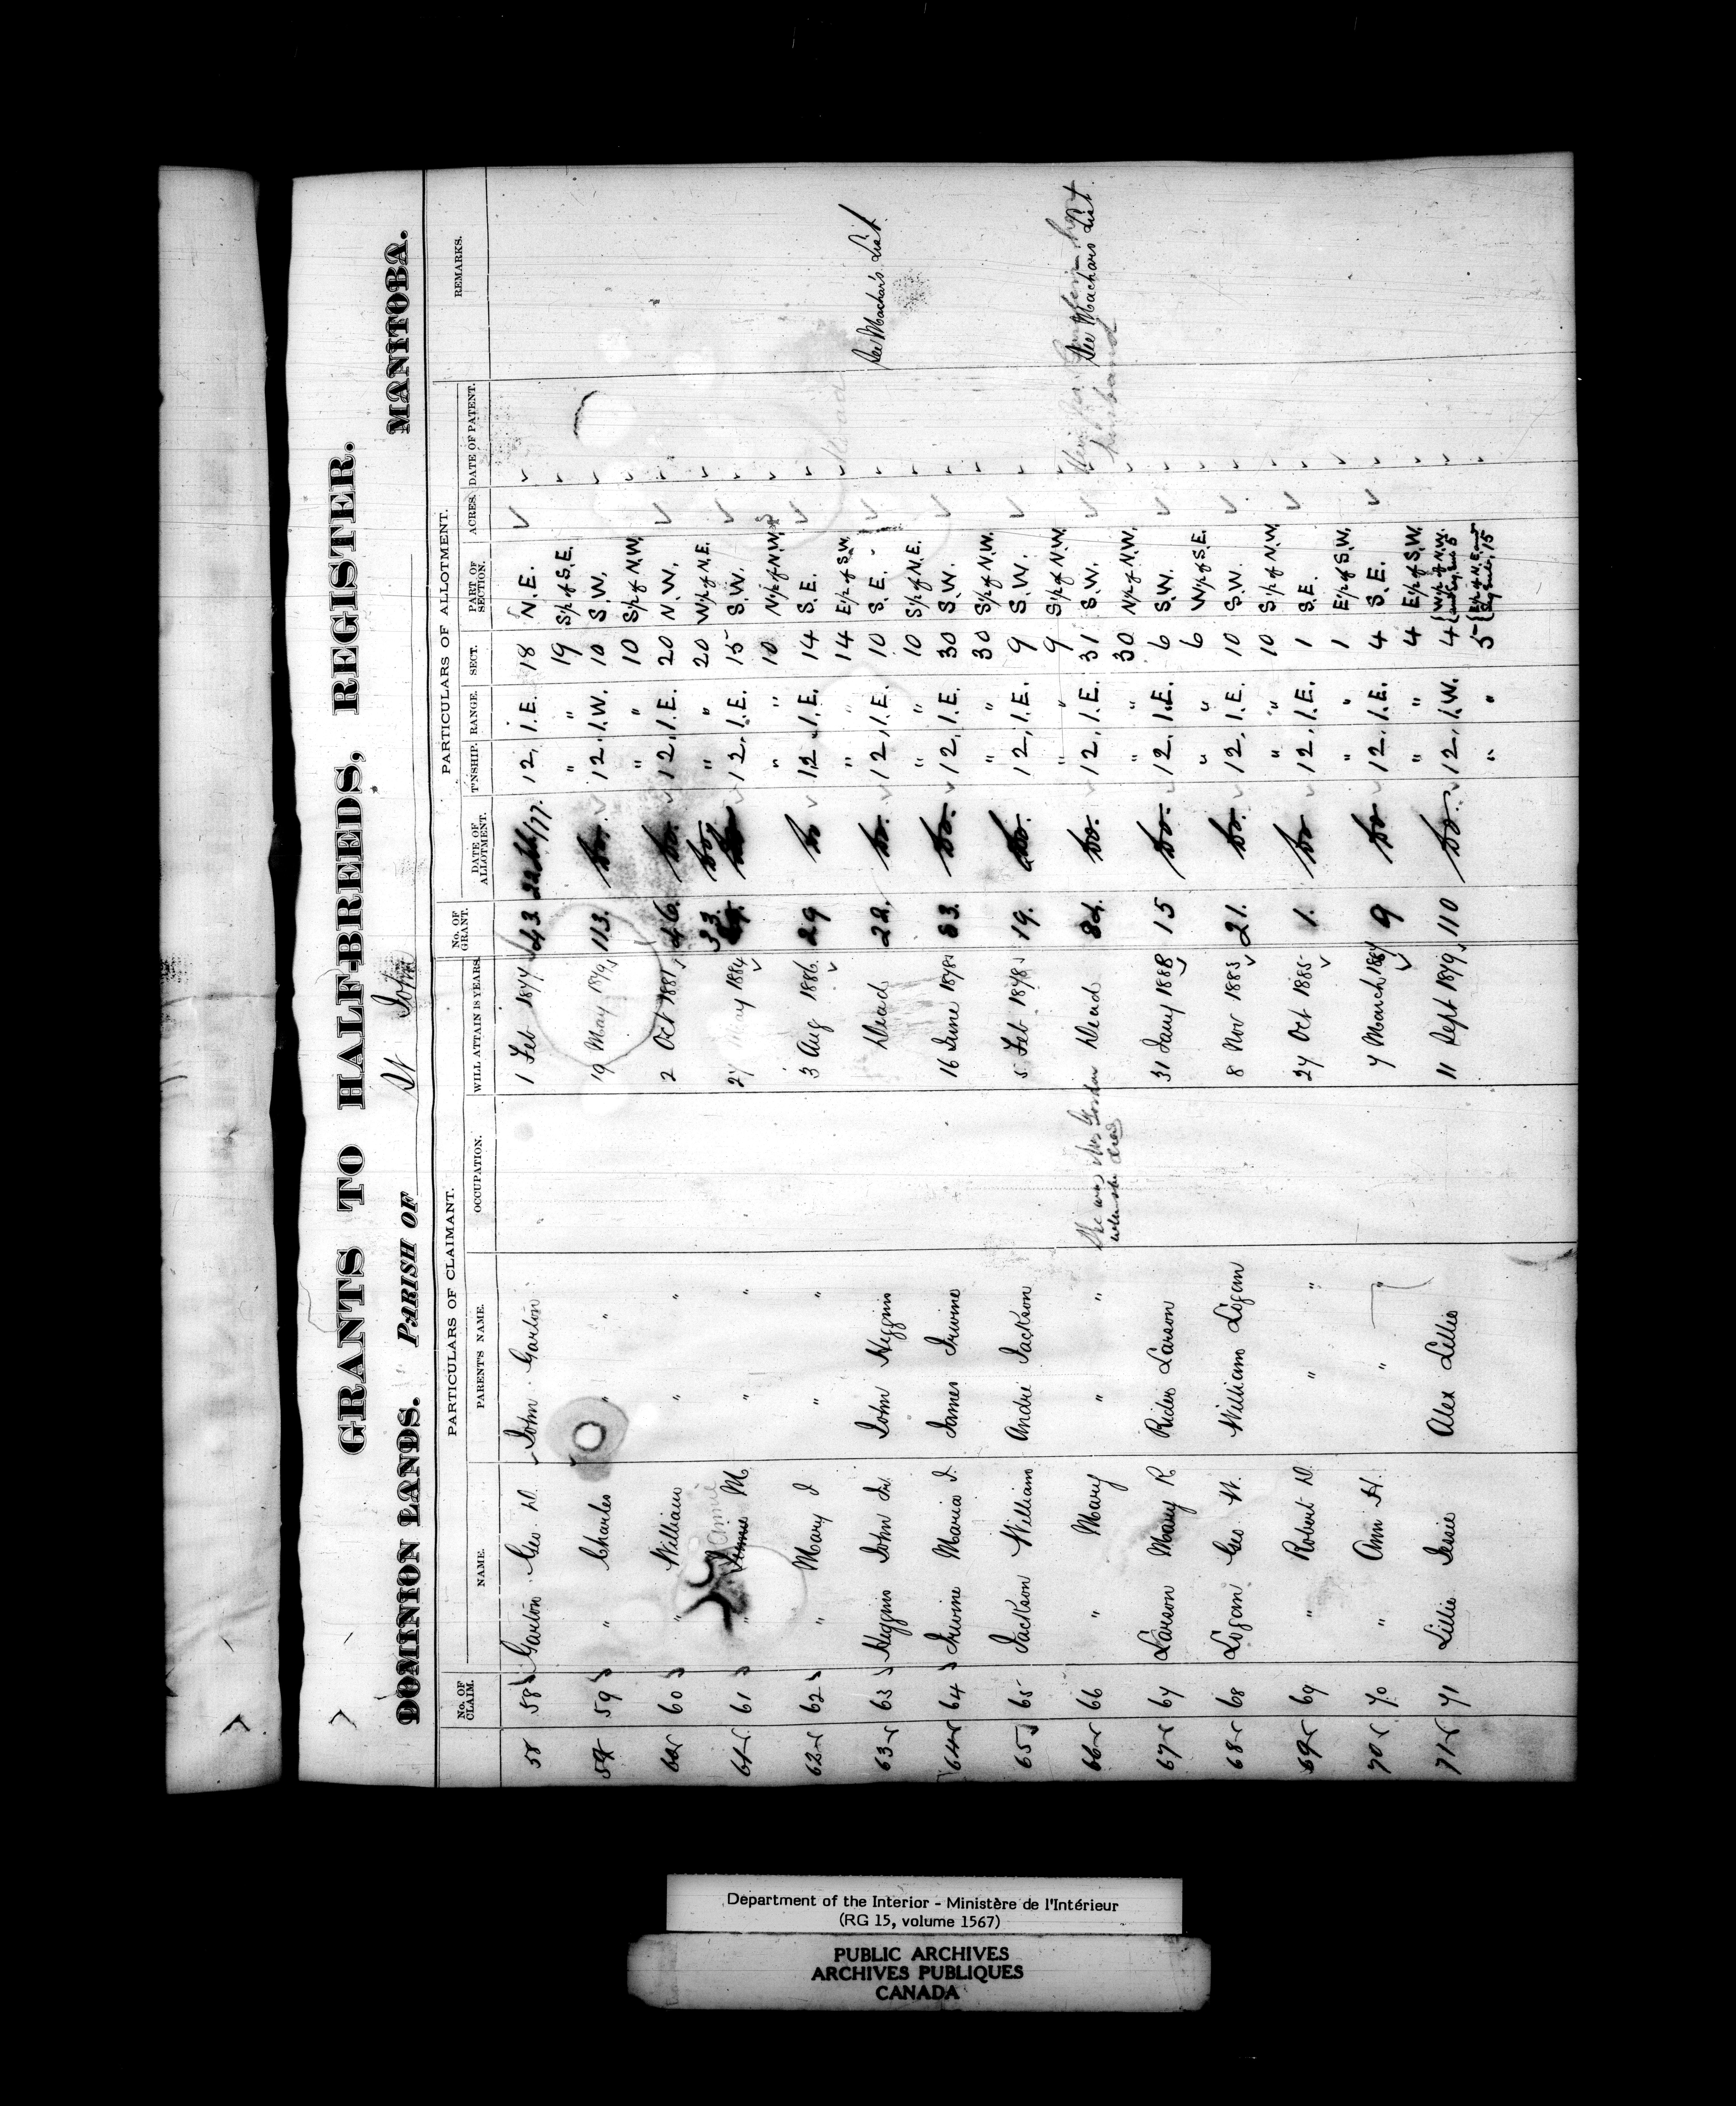 GRANTS TO HALF-BREEDS, REGISTER.
DOMINION LANDS. PARISH OF St John MANITOBA.
PARTICULARS OF CLAIMANT. PARTICULARS OF ALLOTMENT.
No. OF CLAIM. NAME. PARENT'S NAME. OCCUPATION. WILL ATTAIN 18 YEARS. No. OF GRANT. DATE OF ALLOTMENT. T'NSHIP. RANGE. SECT. PART OF SECTION. ACRES. DATE OF PATENT. REMARKS.
58 58 Garton Geo. D. John Garton 1 Feb 1877 43 22 /77. 12, 1.E. 18 N.E.
" " 19 S1/2 of S.E.
59 59 " Charles " " 19 May 1879 113. Do. 12, 1.W. 10 S.W.
" " 10 S1/2 of N.W.
60 60 " William " " 2 Oct 1881 46. Do. 12, 1.E. 20 N.W.
33. Do. " " 20 W1/2 of N.E.
Annie
61 61 " M " " 27 May 1884 12, 1.E. 15 S.W.
" " 10 N1/2 of N.W.
62 62 " Mary J " " 3 Aug 1886 29 Do 12, 1.E. 14 S.E.
" " 14 E1/2 of S.W.
63 63 Higgins John Jr. John Higgins Dead 22. Do. 12, 1.E. 10 S.E. See Machar's List
" " 10 S1/2 of N.E.
64 64 Irwine Maria J. James Irwine 16 June 1878 63. Do. 12, 1.E. 30 S.W.
" " 30 S1/2 of N.W.
65 65 Jackson William André Jackson 5 Feb 1878 19. Do. 12, 1.E. 9 S.W.
" " 9 S1/2 of N.W.
66 66 " Mary " " She was Mrs Gordon when she died Dead 84. Do. 12, 1.E. 31 S.W. See Machars List
husband
" " 30 N1/2 of N.W.
67 67 Larson Mary R Rider Larson 31 Jany 1888 15 Do. 12, 1.E. 6 S.W.
" " 6 W1/2 of S.E.
68 68 Logan Geo. W. William Logan 8 Nov 1883 21. Do. 12, 1.E. 10 S.W.
" " 10 S1/2 of N.W.
69 69 " Robert D. " " 27 Oct 1885 1. Do 12, 1.E. 1 S.E.
" " 1 E1/2 of S.W.
70 70 " Ann H. " " 7 March 1887 9 Do 12, 1.E. 4 S.E.
" " 4 E1/2 of S.W.
71 71 Lillie Jessie Alex Lillie 11 Sept 1879 110 Do. 12, 1.W. 4 W1/2 of N.W.
" " 5 E1/2 of N.E. and
15
Department of the Interior - Ministère de l'Intérieur
(RG 15, volume 1567)
PUBLIC ARCHIVES
ARCHIVES PUBLIQUES
CANADA